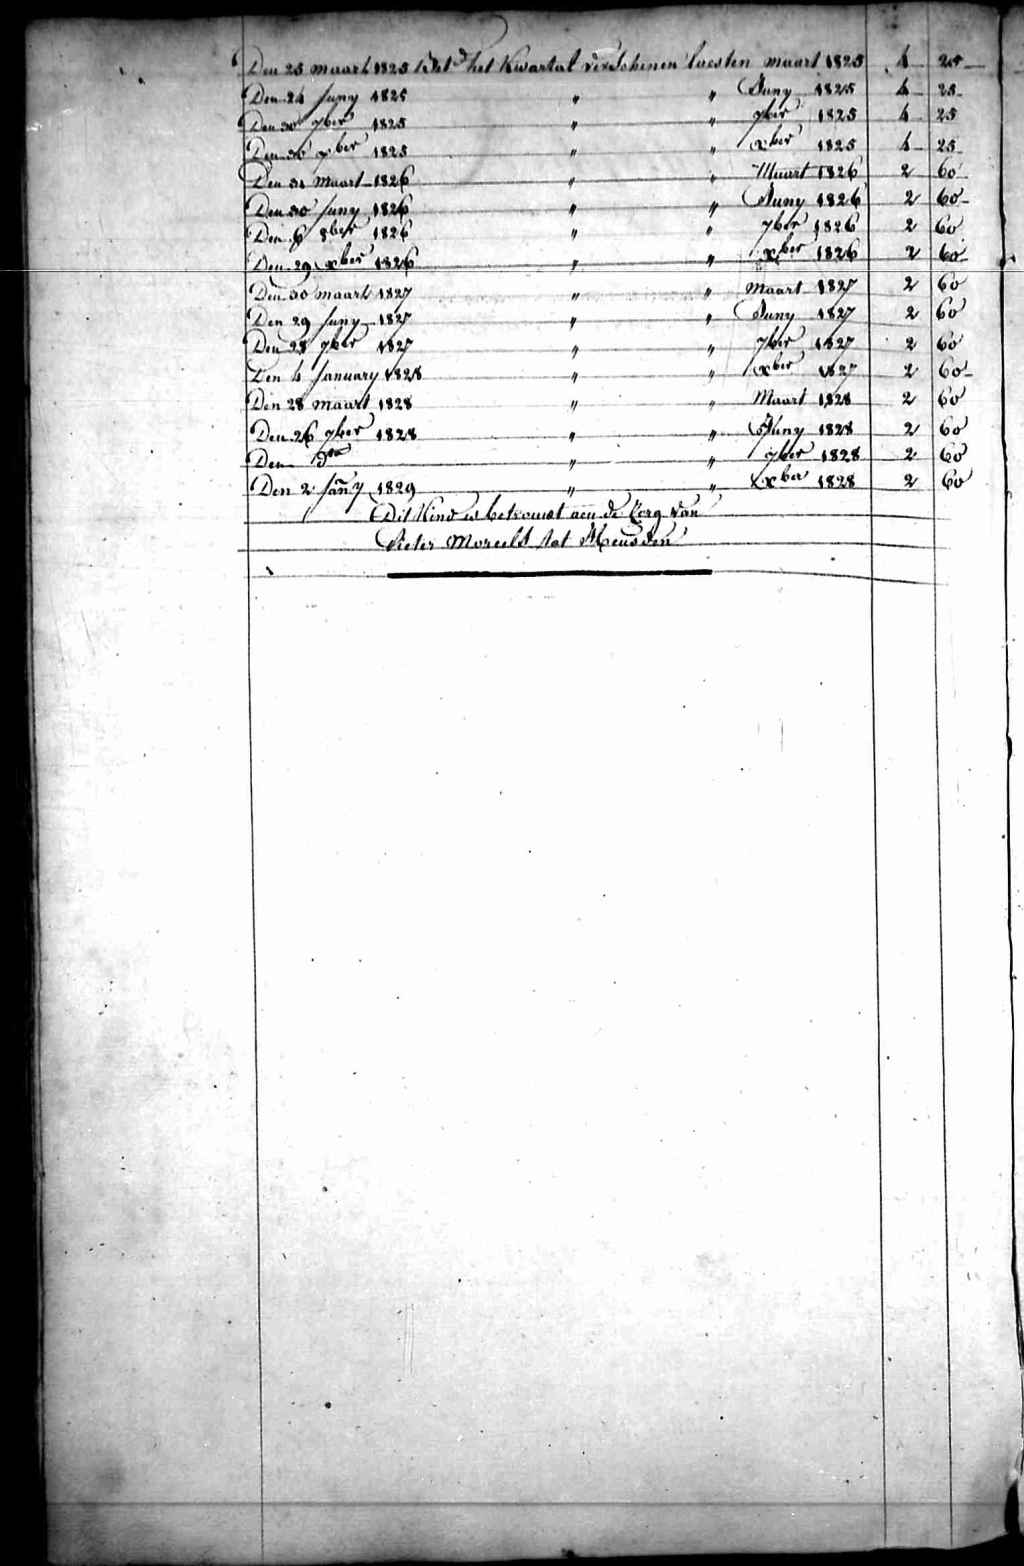 Den 25 maart 1825 bet.d het Kwartal verschenen laesten maart 1825 4 25
Den 24 Juny 1825 " " Juny 1825 4 25
Den 30 7ber 1825 " " 7ber 1825 4 25
Den 30 xber 1825 " " xber 1825 4 25
Den 31 maart 1826 " " Maart 1826 2 60
Den 30 Juny 1826 " " Juny 1826 2 60
Den 6 8ber 1826 " " 7ber 1826 2 60
Den 29 xber 1826 " " xber 1826 2 60
Den 30 maart 1827 " " maart 1827 2 60
Den 29 Juny 1827 " " Juny 1827 2 60
Den 28 7ber 1827 " " 7ber 1827 2 60
Den 4 January 1828 " " xber 1827 2 60
Den 28 maart 1828 " " Maart 1828 2 60
Den 26 7ber 1828 " " Juny 1828 2 60
Den " " 7ber 1828 2 60
Den 2 Jany 1829 " " xber 1828 2 60
Dit Kind is betrouwt aen de Zorg van
Pieter Moreels tot Heusden